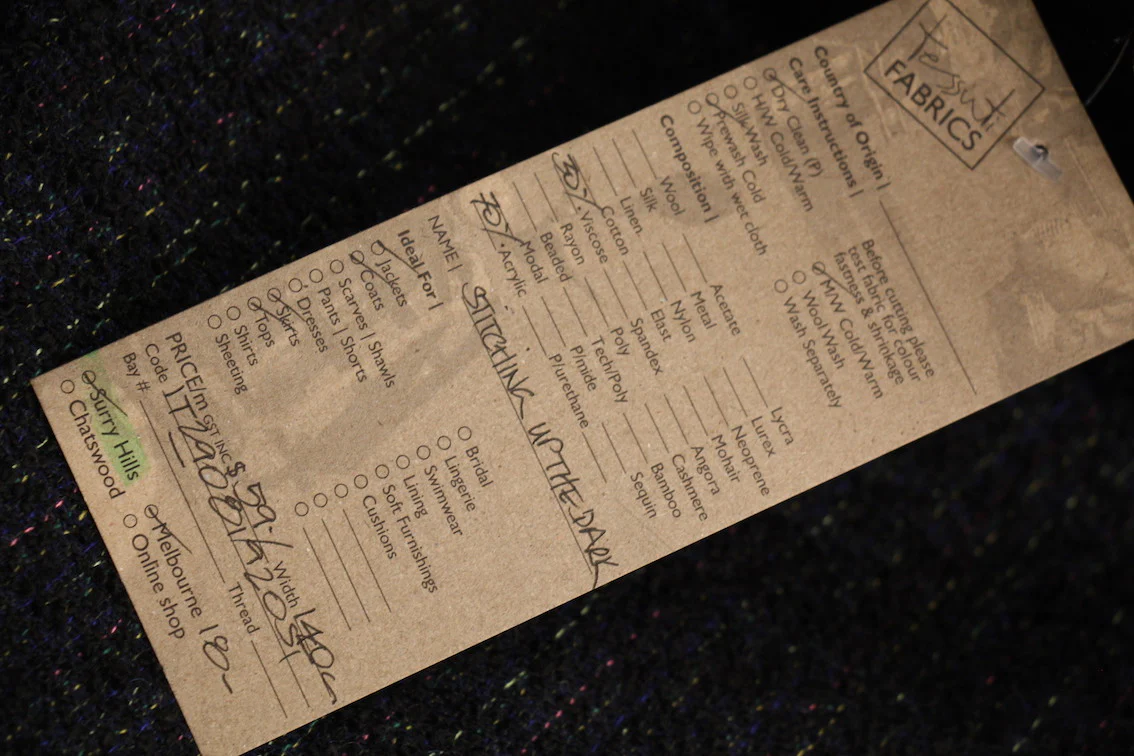 tessuti
FABRICS
Country of Origin |
Care Instructions |
Dry Clean (P)
H/W Cold/Warm
Silk Wash
Prewash Cold
Wipe with wet cloth
Before cutting please
test fabric for colour
fastness & shrinkage
M/W Cold/Warm
Wool Wash
Wash Separately
Composition |
Wool Acetate Lycra
Silk Metal Lurex
Linen Nylon Neoprene
Cotton Elast Mohair
30% Viscose Spandex Angora
Rayon Poly Cashmere
Beaded Tech/Poly Bamboo
Modal P/mide Sequin
70% Acrylic P/urethane
NAME | STITCHING UP THE DARK
Ideal For |
Jackets Bridal
Coats Lingerie
Scarves | Shawls Swimwear
Pants | Shorts Lining
Dresses Soft Furnishings
Skirts Cushions
Tops
Shirts
Sheeting
PRICE/m GST INC $ 59.- Width 140cm
Code
Bay # Thread
Surry Hills Melbourne 18m
Chatswood Online shop